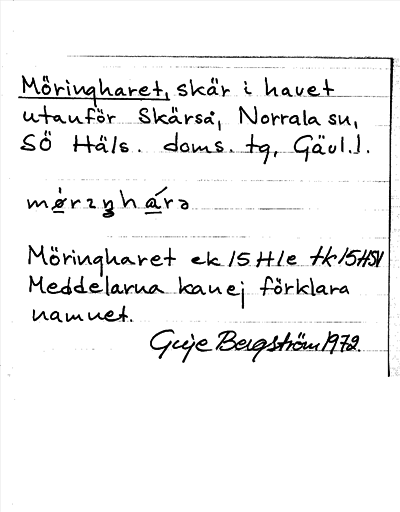 Möringharet, skär i havet
utanför Skärså, Norrala sn,
SÖ Häls. doms. tg, Gävl.l.
Möringharet ek 15 H1e tk 15 HSV
Meddelarna kan ej förklara
namnet.
Bergström 1972.